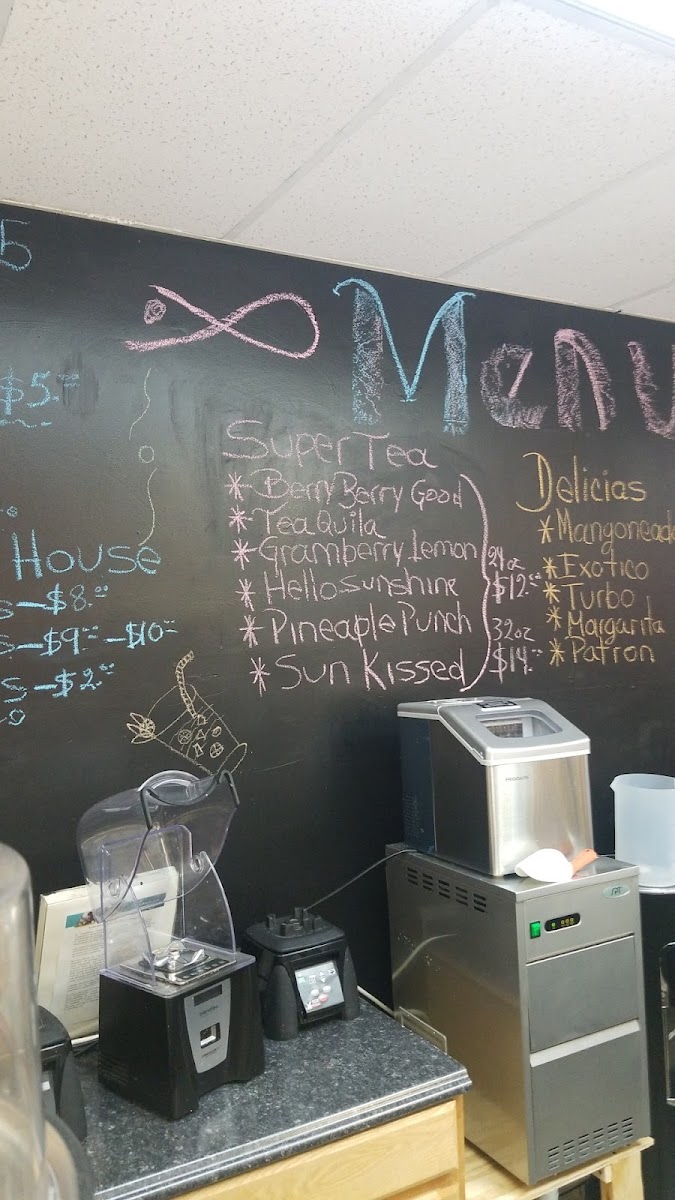 5
$5.00
House
s-$8.00
s-$9.00-$10.00
s-$2.00
Menu
Super Tea
* Berry Berry Good
* TeaQuila
* Gramberry Lemon
* Hello Sunshine
* Pineaple Punch
* Sun Kissed
24 oz
$12.00
32 oz
$14.00
Delicias
* Mangoneada
* Exotico
* Turbo
* Margarita
* Patron